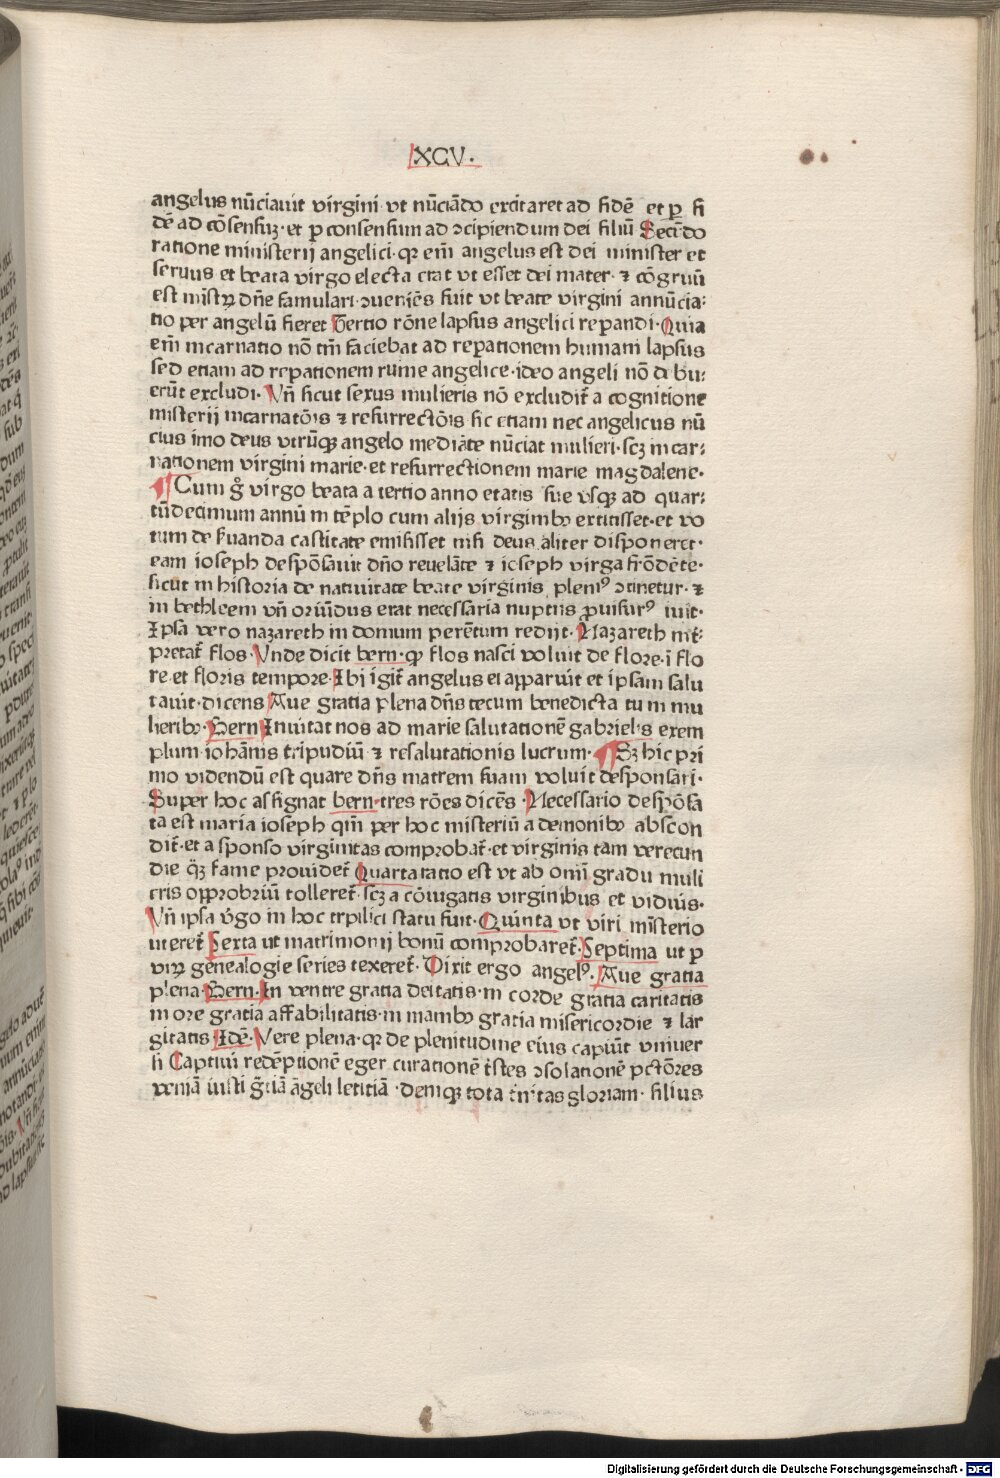 XCV.
angelus nūciauit virgini vt nūciādo excitaret ad fidē et ꝑ fi
dē ad cōsensuꝫ· et ꝑ consensum ad ↄcipiendum dei filiū Secūdo
ratione ministerij angelici· qꝛ em̄ angelus est dei minister et
seruus et beata virgo electa erat vt esset dei mater· ⁊ cōgruū
est mīstꝝ dn̄e famulari· ↄueniēs fuit vt beate virgini annūcia:
tio per angelū fieret Tertio rōne lapsus angelici reꝑandi· Quia
em̄ incarnatio nō tm̄ faciebat ad reꝑationem humani lapsus
sed etiam ad reꝑationem ruine angelice· ideo angeli nō debu:
erūt excludi· Vn̄ sicut sexus mulieris nō excludit᷑ a cognitione
misterij incarnatōis ⁊ resurrectōis sic etiam nec angelicus nū
cius imo deus vtrūqꝫ angelo mediāte nūciat mulieri· scꝫ incar:
nationem virgini marie· et resurrectionem marie magdalene·
¶ Cum gͦ virgo beata a tertio anno etatis sue vsqꝫ ad quar:
tūdecimum annū in tēplo cum alijs virginibꝫ extitisset· et vo
tum de ẜuanda castitate emisisset nisi deus aliter disponeret·
eam ioseph despōsauit dn̄o reuelāte ⁊ ioseph virga frōdēte·
sicut in historia de natiuitate beate virginis pleniꝰ ↄtinetur· ⁊
in bethleem vn̄ oriūdus erat necessaria nuptijs ꝓuisurꝰ iuit·
Ipsa vero nazareth in domum perētum redijt· Nazareth int᷑:
pretat᷑ flos· Vnde dicit bern· qꝫ flos nasci voluit de flore· ī flo
re· et floris tempore· Ibi igit᷑ angelus ei apparuit et ipsam salu
tauit· dicens Aue gratia plena dn̄s tecum benedicta tu in mu
lieribꝫ· Bern Inuitat nos ad marie salutationē gabrielis exem
plum· iohānis tripudiū ⁊ resalutationis lucrum· ¶ Sꝫ hic pri
mo videndū est quare dn̄s matrem suam voluit desponsari·
Super hoc assignat bern· tres rōes dicēs Necessario despōsa
ta est maria ioseph qm̄ per hoc misteriū a demonibꝫ abscon
dit᷑· et a sponso virginitas comprobat᷑· et virginis tam verecun
die qꝫ̄ fame prouidet᷑ Quarta ratio est vt ab om̄i gradu muli
eris opprobriū tolleret᷑· scꝫ a cōiugatis virginibus et viduis·
Vn̄ ipsa v̄go in hoc trpilici statu fuit· Quinta vt viri mīsterio
uteret᷑ Sexta ut matrimonij bonū comprobaret᷑· Septima ut ꝑ
viꝝ genealogie series texeret᷑· Dixit ergo angelꝰ· Aue gratia
plena· Bern· In ventre gratia deitatis· in corde gratia caritatis
in ore gratia affabilitatis· in manibꝫ gratia misericordie ⁊ lar
gitatis Idē· Vere plena· qꝛ de plenitudine eius capiūt vniuer
si Captiui redēptionē eger curationē tīstes ↄsolationē pctōres
veniā iusti gr̄iā āgeli letitiā· deniqꝫ tota tīnitas gloriam· filius
Digitalisierung gefördert durch die Deutsche Forschungsgemeinschaft - DFG